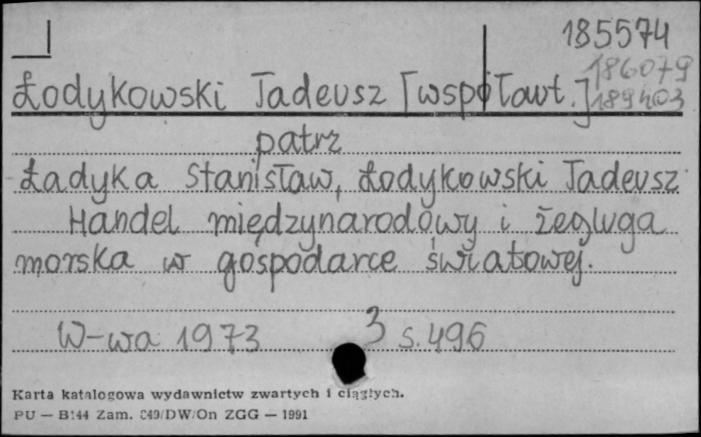 185574
186079
Łodykowski Tadeusz [współawt.] 189403
patrz
Ładyka Stanisław, Łodykowski Tadeusz
Handel międzynarodowy i żegluga
morska w gospodarce światowej.
W-wa 1973 3 s. 496
Karta katalogowa wydawnictw zwartych i ciągłych.
PU — B144 Zam. 349/DW/On ZGG — 1991